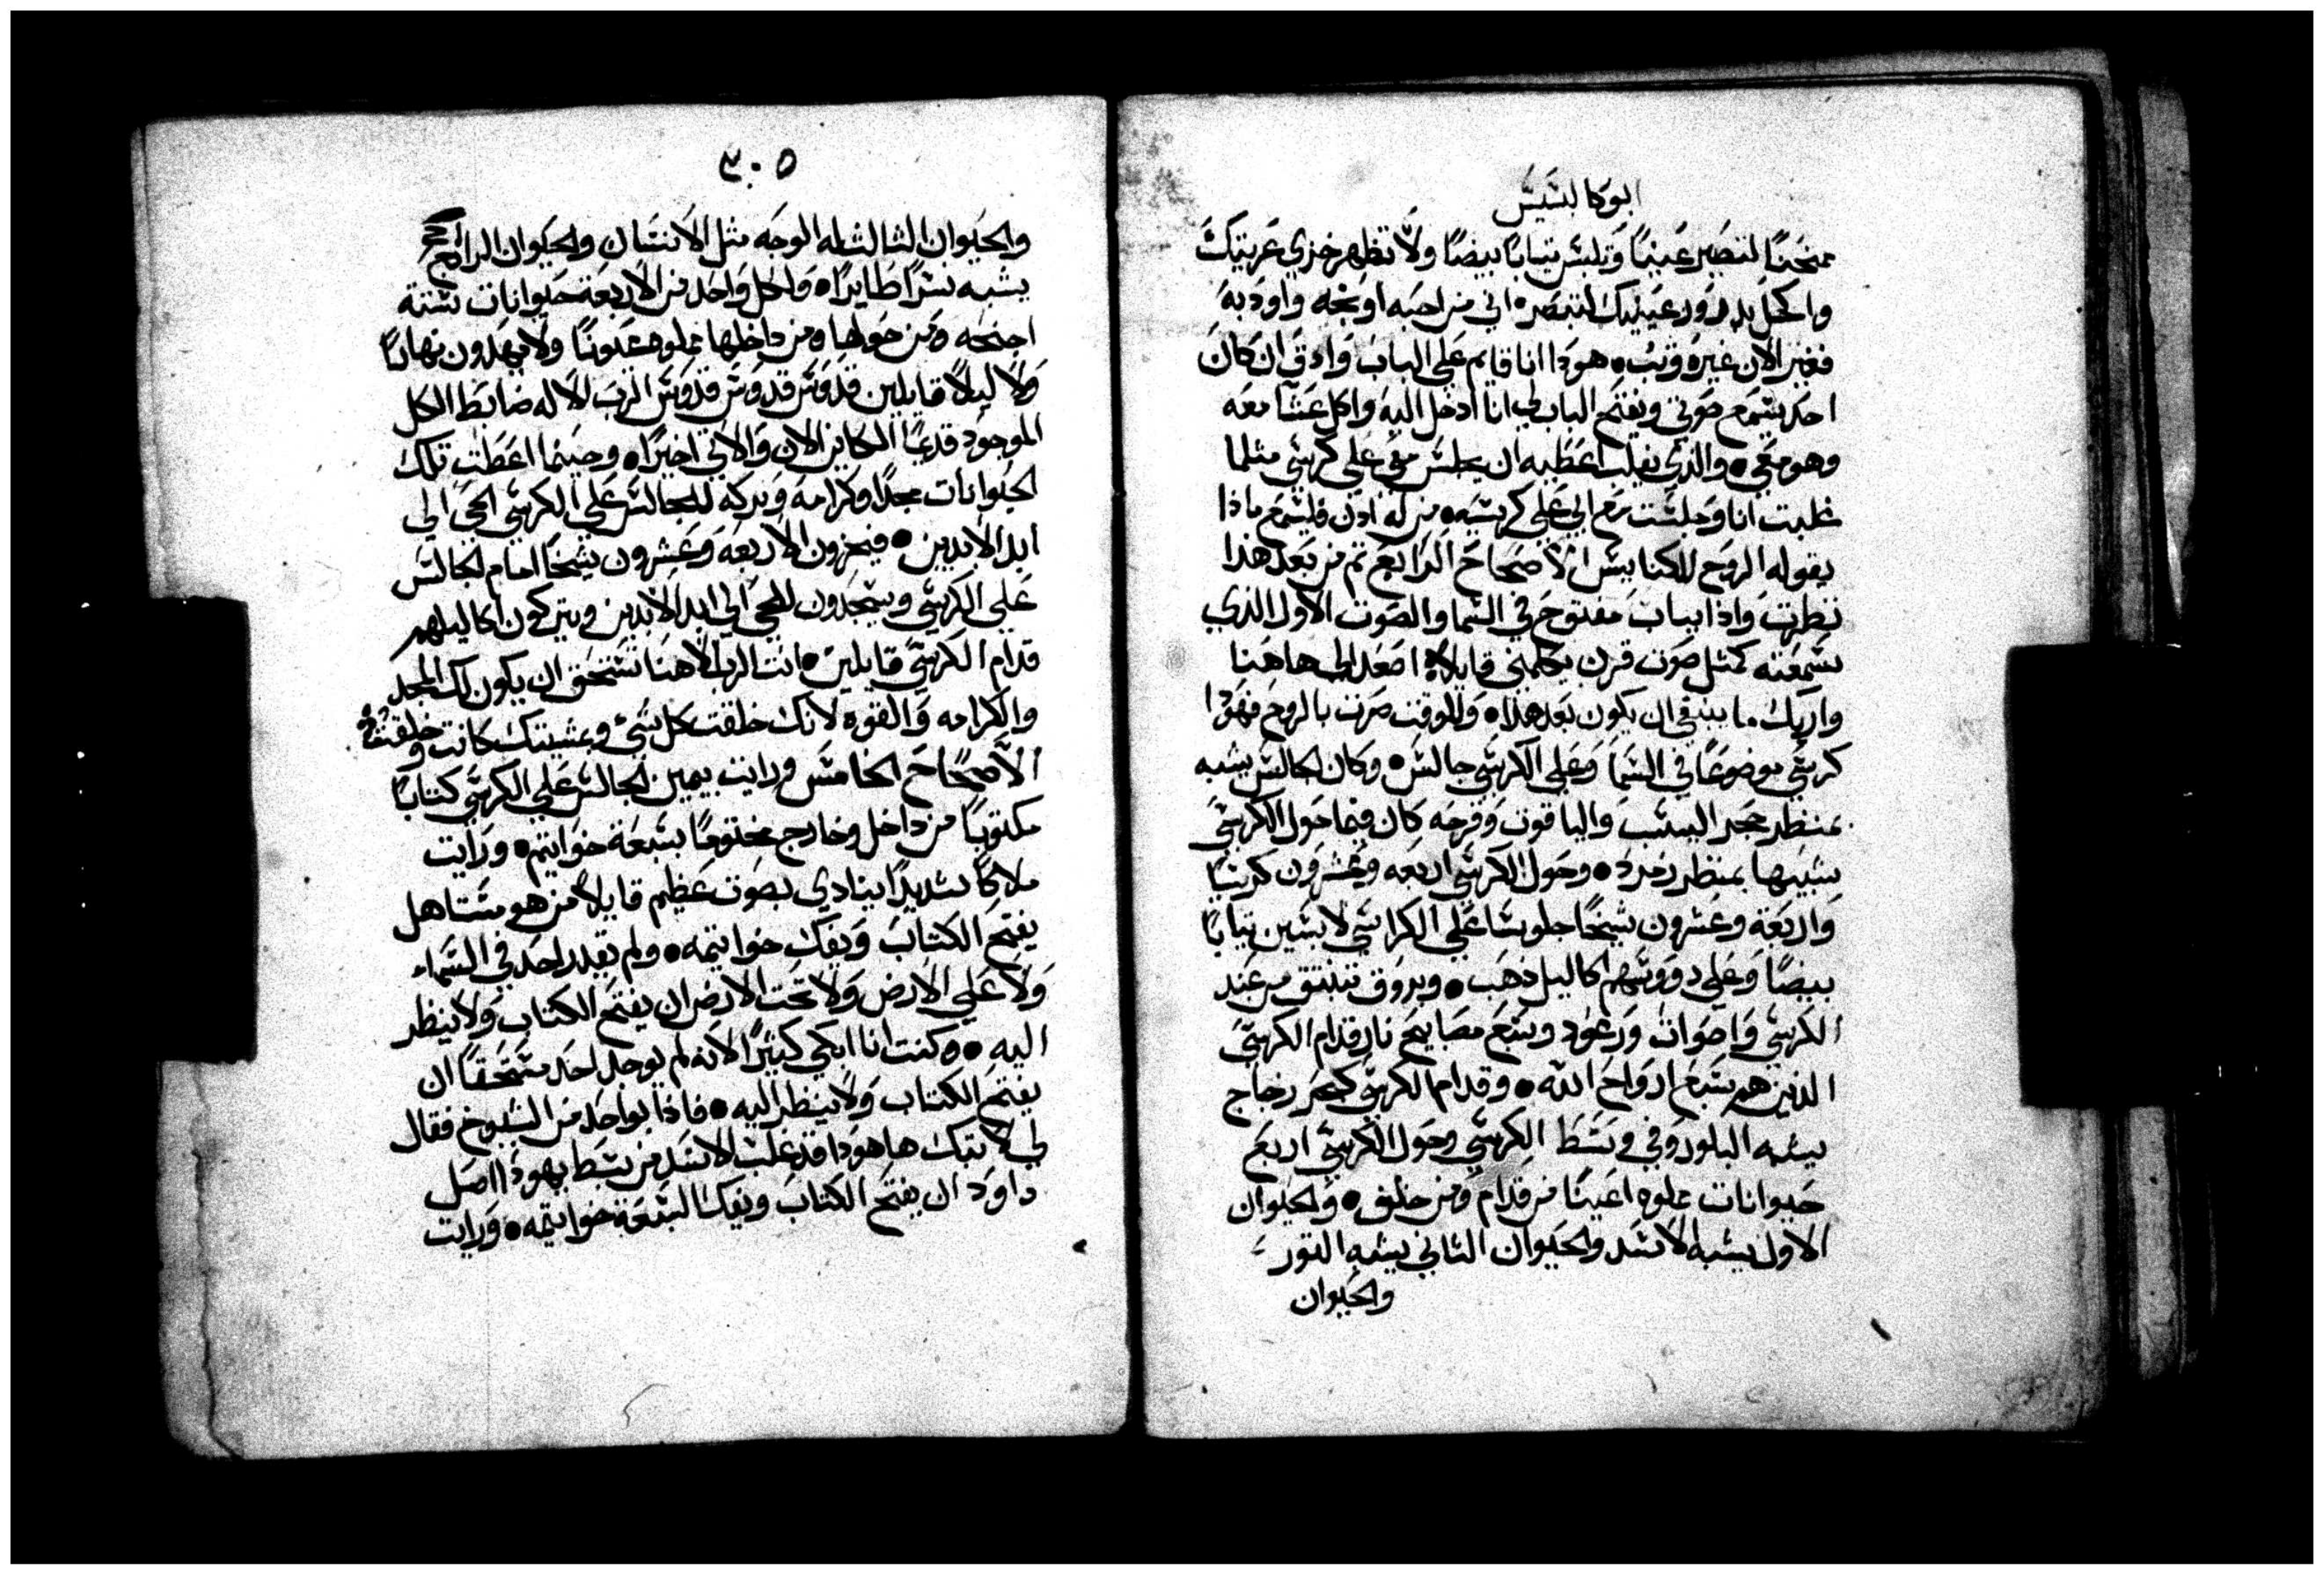 ابوكالبسيس
ممتحنًا لتصير غنيًا وتلبس تيابًا بيضًا ولا تظهر خزي عريتك
والكحل بدرور عينيك لتبصر اني من احبه اوبخه واودبه
فغير الان غيره وتب هودا انا قايم علي الباب وادق ان كان
احد يسمع صوتي ويفتح الباب لي انا ادخل اليه واكل عشا معه
وهو معي والذي يغلب اعطيه ان يجلس معي علي كرسي مثلما
غلبت انا وجلست مع ابي علي كرسيه من له ادن فليسمع ماذا
يقوله الروح للكنايس الاصحاح الرابع تم من بعد هذا
نظرت واذا بباب مفتوح في السما والصوت الاول الذي
سمعته كمثل صوت قرن يكلمني قايلا اصعد الي هاهنا
واريك ما ينبغي ان يكون بعد هذا وللوقت صرت بالروح فهودا
كرسي موضوعًا في السما وعلي الكرسي جالس وكان الجالس يشبه
بمنظر حجر اليسب والياقوت وقزحه كان فيما حول الكرسي
شبيها بمنظر زمرد وحول الكرسي اربعه وعشرون كرسيًا
واربعة وعشرون شيخًا جلوسًا علي الكراسي لابسين تيابًا
بيضًا وعلي رووسهم اكاليل ذهب وبروق تنبتق من عند
الكرسي واصوات ورعود وسبع مصابيح نار قدام الكرسي
الذين هم سبع ارواح الله وقدام الكرسي كبحر زجاج
يشبه البلور وفي وسط الكرسي وحول الكرسي اربع
حيوانات مملوه اعينًا من قدام ومن خلف والحيوان
الاول يشبه الاسد والحيوان الثاني يشبه التور
والحيوان
٣٠٥
والحيوان الثالث له الوجه مثل الانسان والحيوان الرابع
يشبه نسرًا طايرًا ولكل واحد من الاربعة حيوانات ستة
اجنحه ومن حولها ومن داخلها مملوه عيونًا ولا يهدون نهارًا
ولا ليلا قايلين قدوس قدوس قدوس الرب الاله ضابط الكل
الموجود قديمًا الكاين الان والاتي اخيرًا وحينما اعطت تلك
الحيوانات مجدًا وكرامه وبركه للجالس علي الكرسي الحي الي
ابد الابدين فيخرون الاربعه وعشرون شيخًا امام الجالس
علي الكرسي ويسجدون للحي الي ابد الابدين ويتركون اكاليلهم
قدام الكرسي قايلين انت الرب الاهنا تستحق ان يكون لك المجد
والكرامه والقوه لانك خلقت كل شي وبمشيتك كانت وخلقت
الاصحاح الخامس ورايت بيمين الجالس علي الكرسي كتابًا
مكتوبًا من داخل وخارج مختومًا بسبعة خواتيم ورايت
ملاكًا شديدًا ينادي بصوت عظيم قايلا من هو مستاهل
يفتح الكتاب ويفك خواتيمه ولم يقدر احد في السماء
ولا علي الارض ولا تحت الارض ان يفتح الكتاب ولا ينظر
اليه وكنت انا ابكي كثيرًا لانه لم يوجد احد مستحقًا ان
يفتح الكتاب ولا ينظر اليه فاذا بواحد من الشيوخ فقال
لي لا تبك ها هودا قد غلب الاسد من سبط يهودا اصل
داود ان يفتح الكتاب ويفك السبعة خواتيمه ورايت